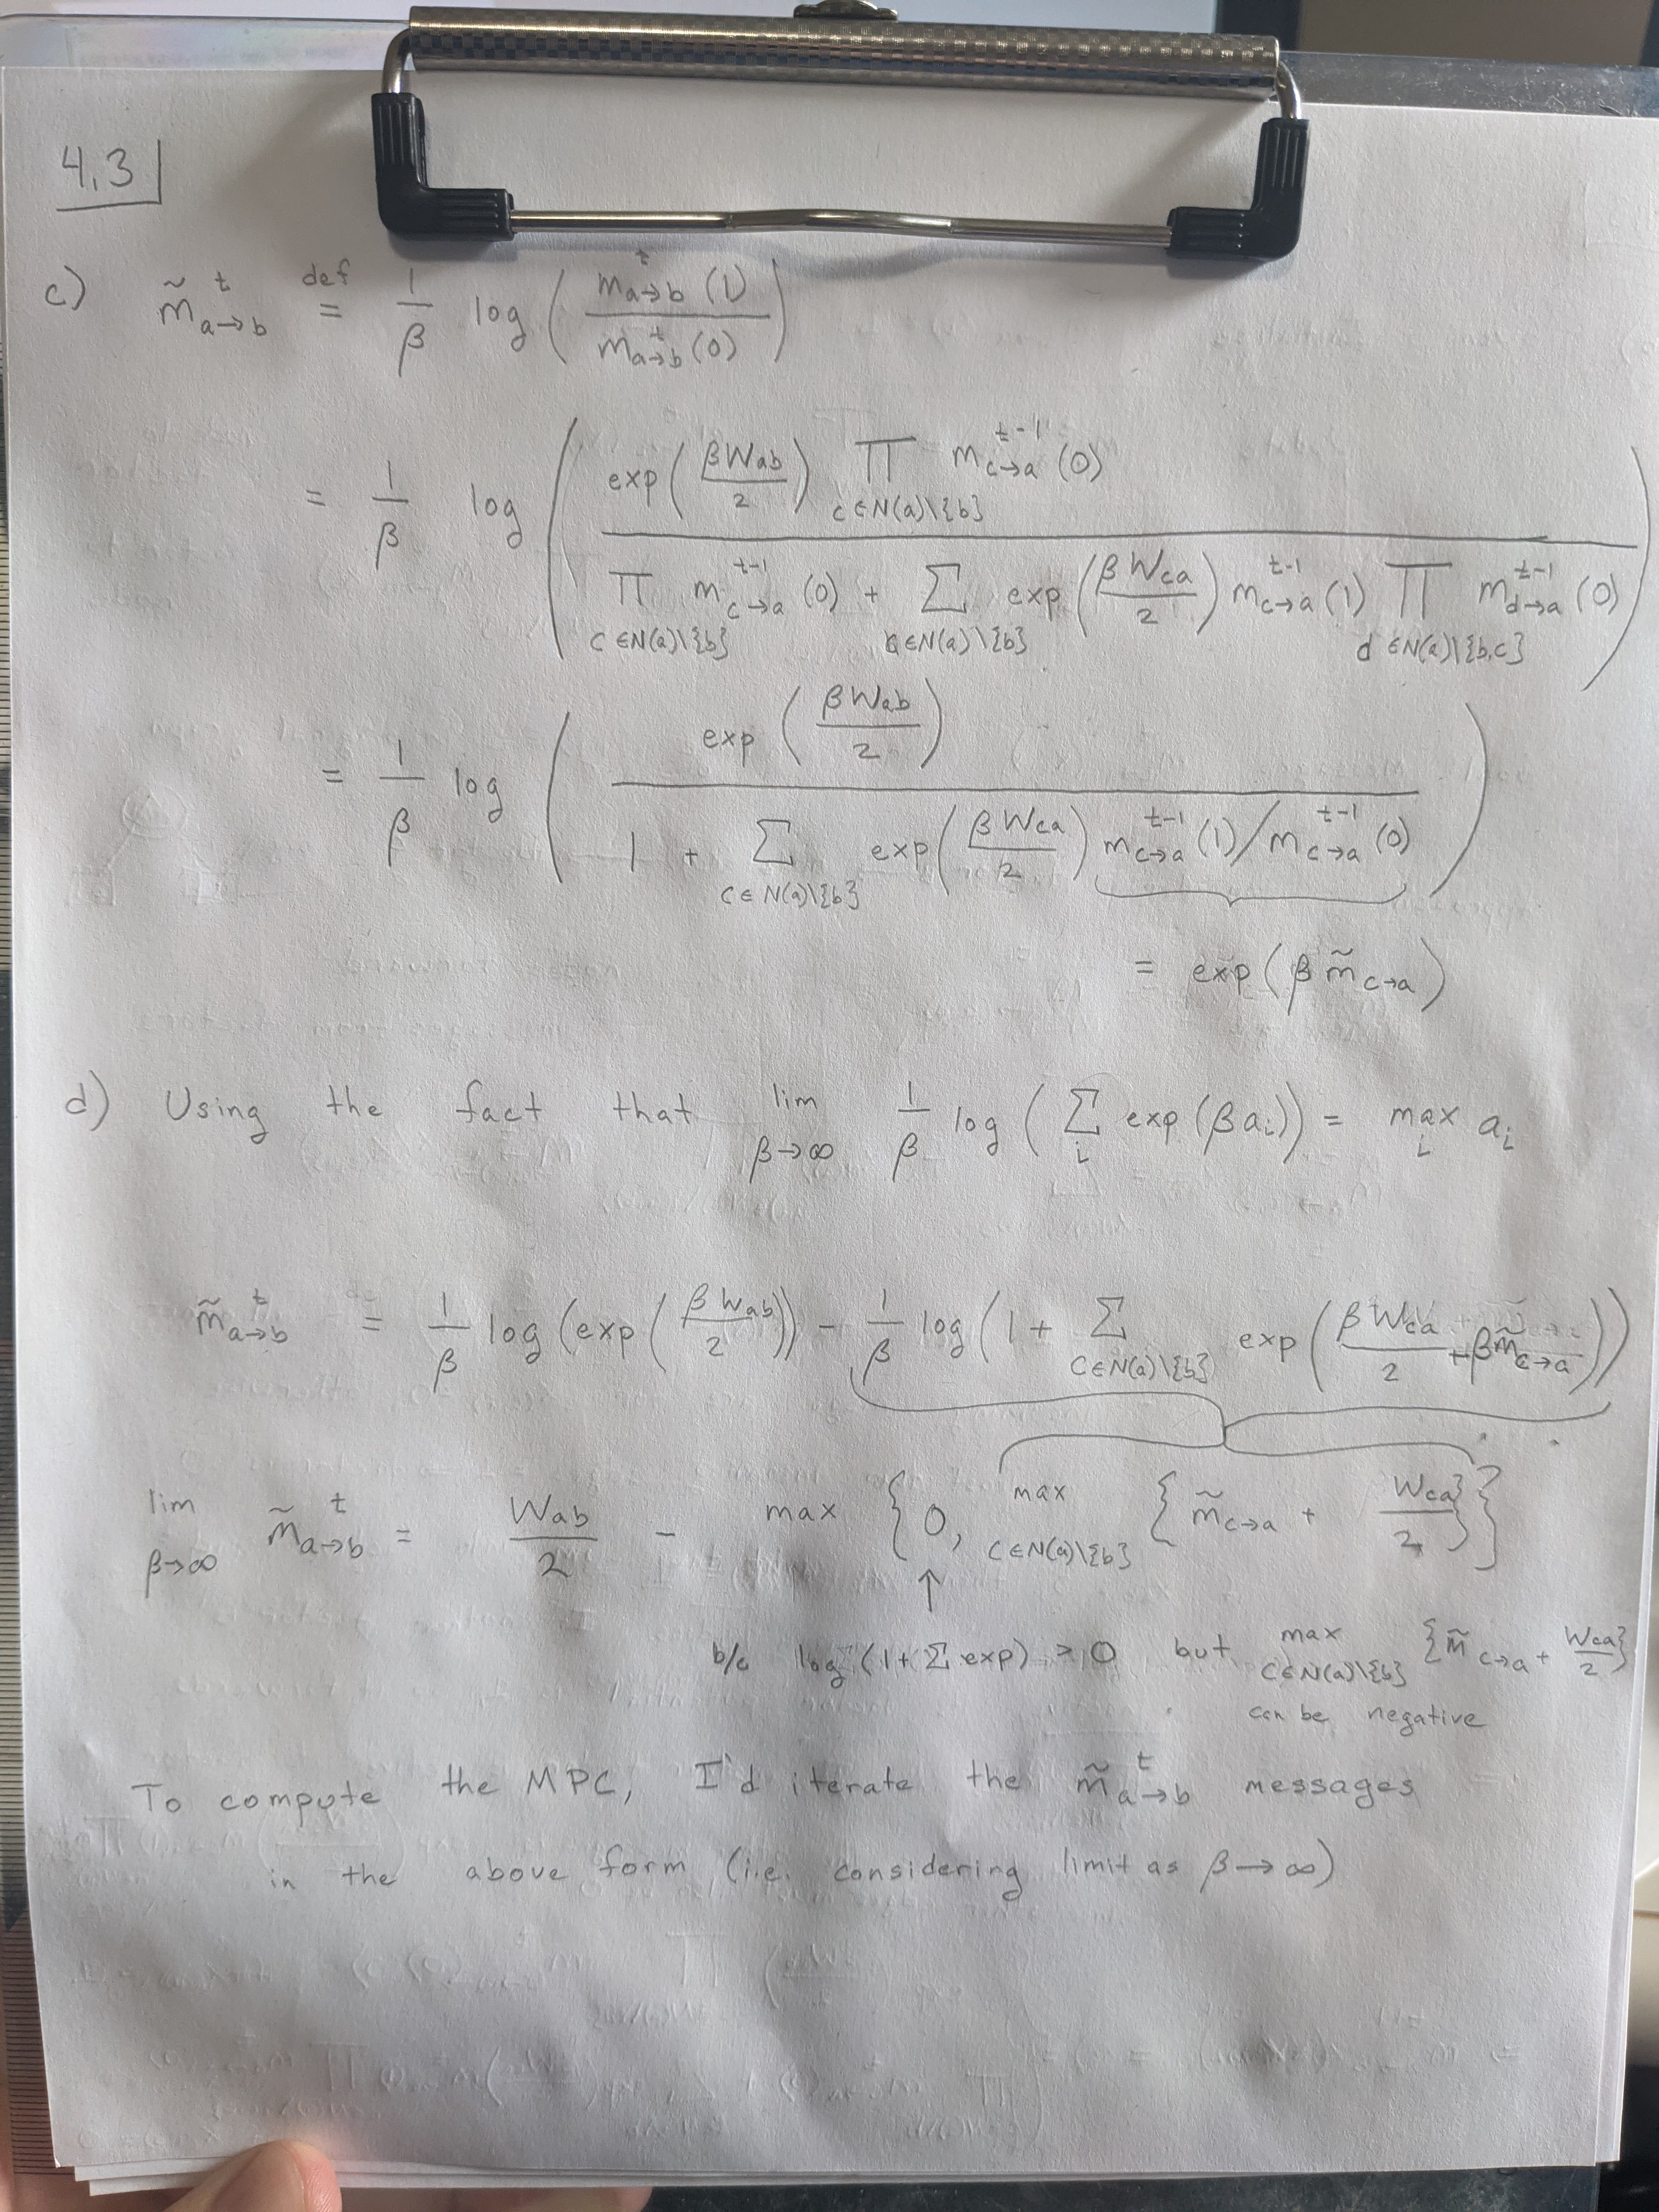 4.3
c) m̃^t_{a→b} def= 1/β log ( m^t_{a→b}(1) / m^t_{a→b}(0) )
= 1/β log ( exp(βW_{ab}/2) ∏_{c∈N(a)\{b}} m^{t-1}_{c→a}(0) / ∏_{c∈N(a)\{b}} m^{t-1}_{c→a}(0) + ∑_{c∈N(a)\{b}} exp(βW_{ca}/2) m^{t-1}_{c→a}(1) ∏_{d∈N(a)\{b,c}} m^{t-1}_{d→a}(0) )
= 1/β log ( exp(βW_{ab}/2) / 1 + ∑_{c∈N(a)\{b}} exp(βW_{ca}/2) m^{t-1}_{c→a}(1)/m^{t-1}_{c→a}(0) )
= exp(β m̃_{c→a})
d) Using the fact that lim_{β→∞} 1/β log ( ∑_i exp(βa_i)) = max_i a_i
m̃^t_{a→b} = 1/β log (exp(βW_{ab}/2)) - 1/β log (1 + ∑_{c∈N(a)\{b}} exp(βW_{ca}/2 + βm̃_{c→a}))
lim_{β→∞} m̃^t_{a→b} = W_{ab}/2 - max {0, max_{c∈N(a)\{b}} {m̃_{c→a} + W_{ca}/2}}
↑
b/c log(1+∑exp) > 0 but max_{c∈N(a)\{b}} {m̃_{c→a} + W_{ca}/2}
can be negative
To compute the MPC, I'd iterate the m̃^t_{a→b} messages
in the above form (i.e. considering limit as β→∞)